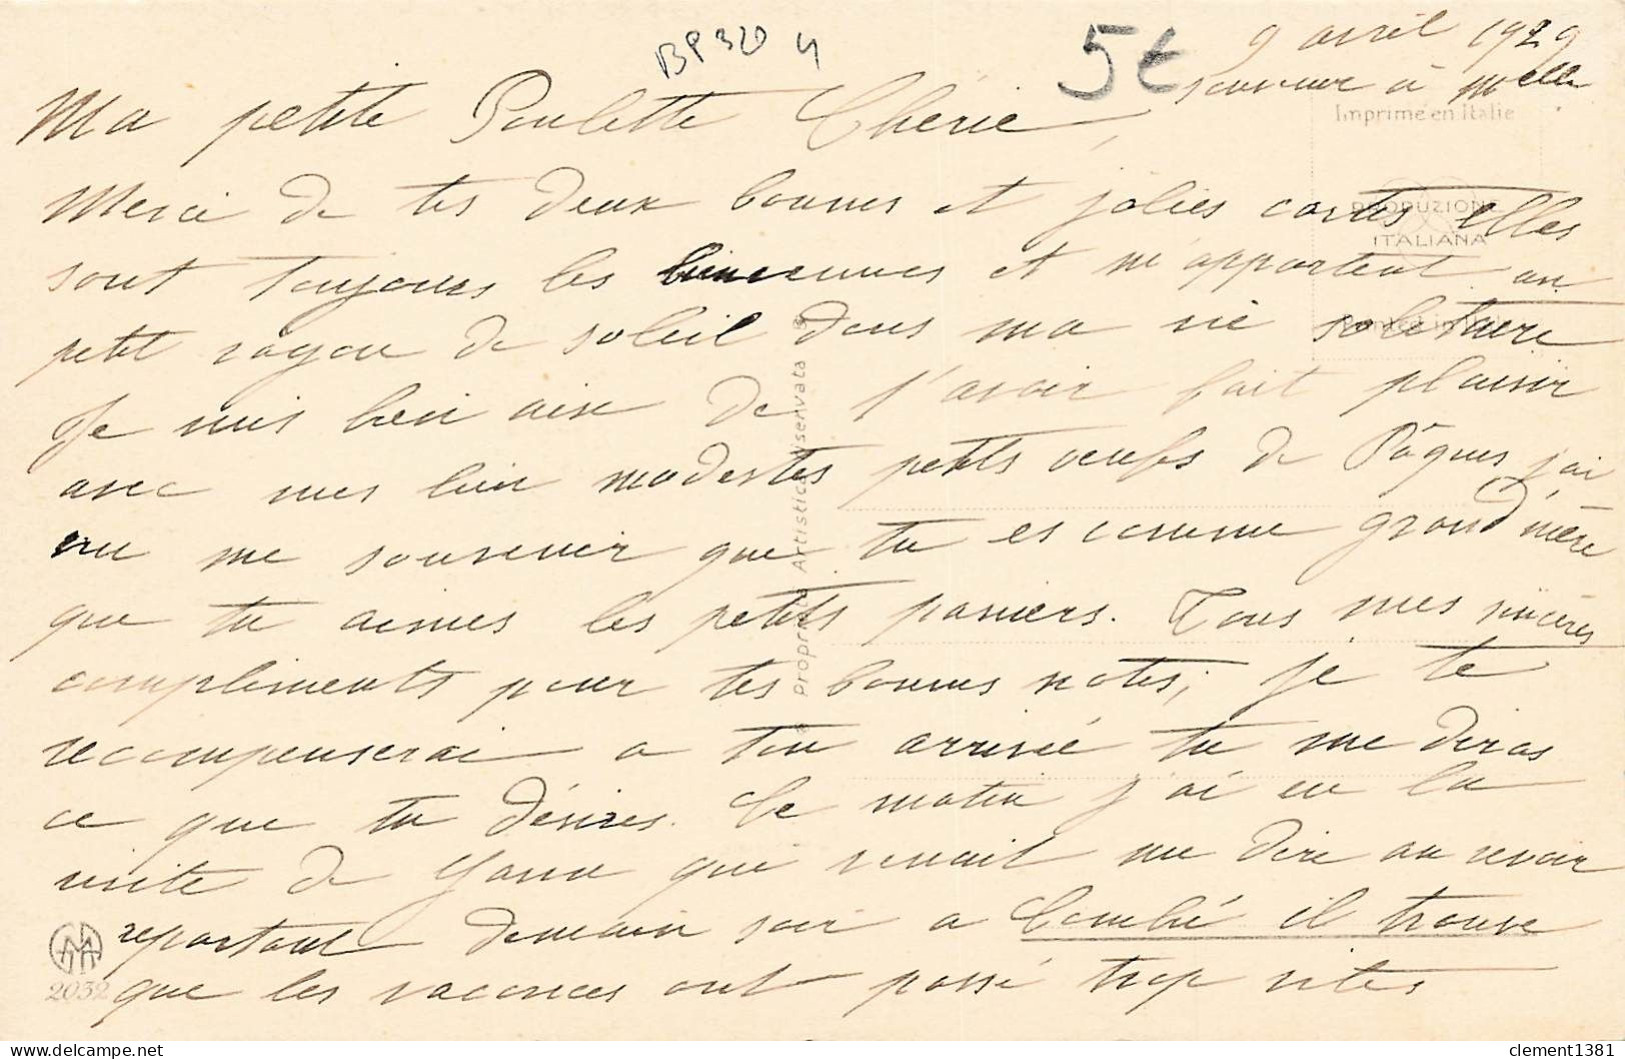 BP 320 4
5€
9 avril 1929
Imprimé en Italie
souvenir à Melle
Ma petite Poulette Cherie,
Merci de tes deux bonnes et jolies cartes elles
PRODUZIONE
ITALIANA
sont toujours les bienvenues et m'apportent un
petit rayon de soleil dans ma vie solitaire
Printed in Italy
Je suis bien aise de t'avoir fait plaisir
avec mes bien modestes petits oeufs de Pâques j'ai
cru me souvenir que tu es comme grand'mère
que tu aimes les petits paniers. Tous mes sincères
compliments pour tes bonnes notes, je te
recompenserai a ton arrivée tu me diras
ce que tu désires. Ce matin j'ai eu la
visite de qui venait me dire au revoir
repartant demain soir a il trouve
que les vacances ont passé trop vites
2032
Proprietà Artistica Riservata
clement1381